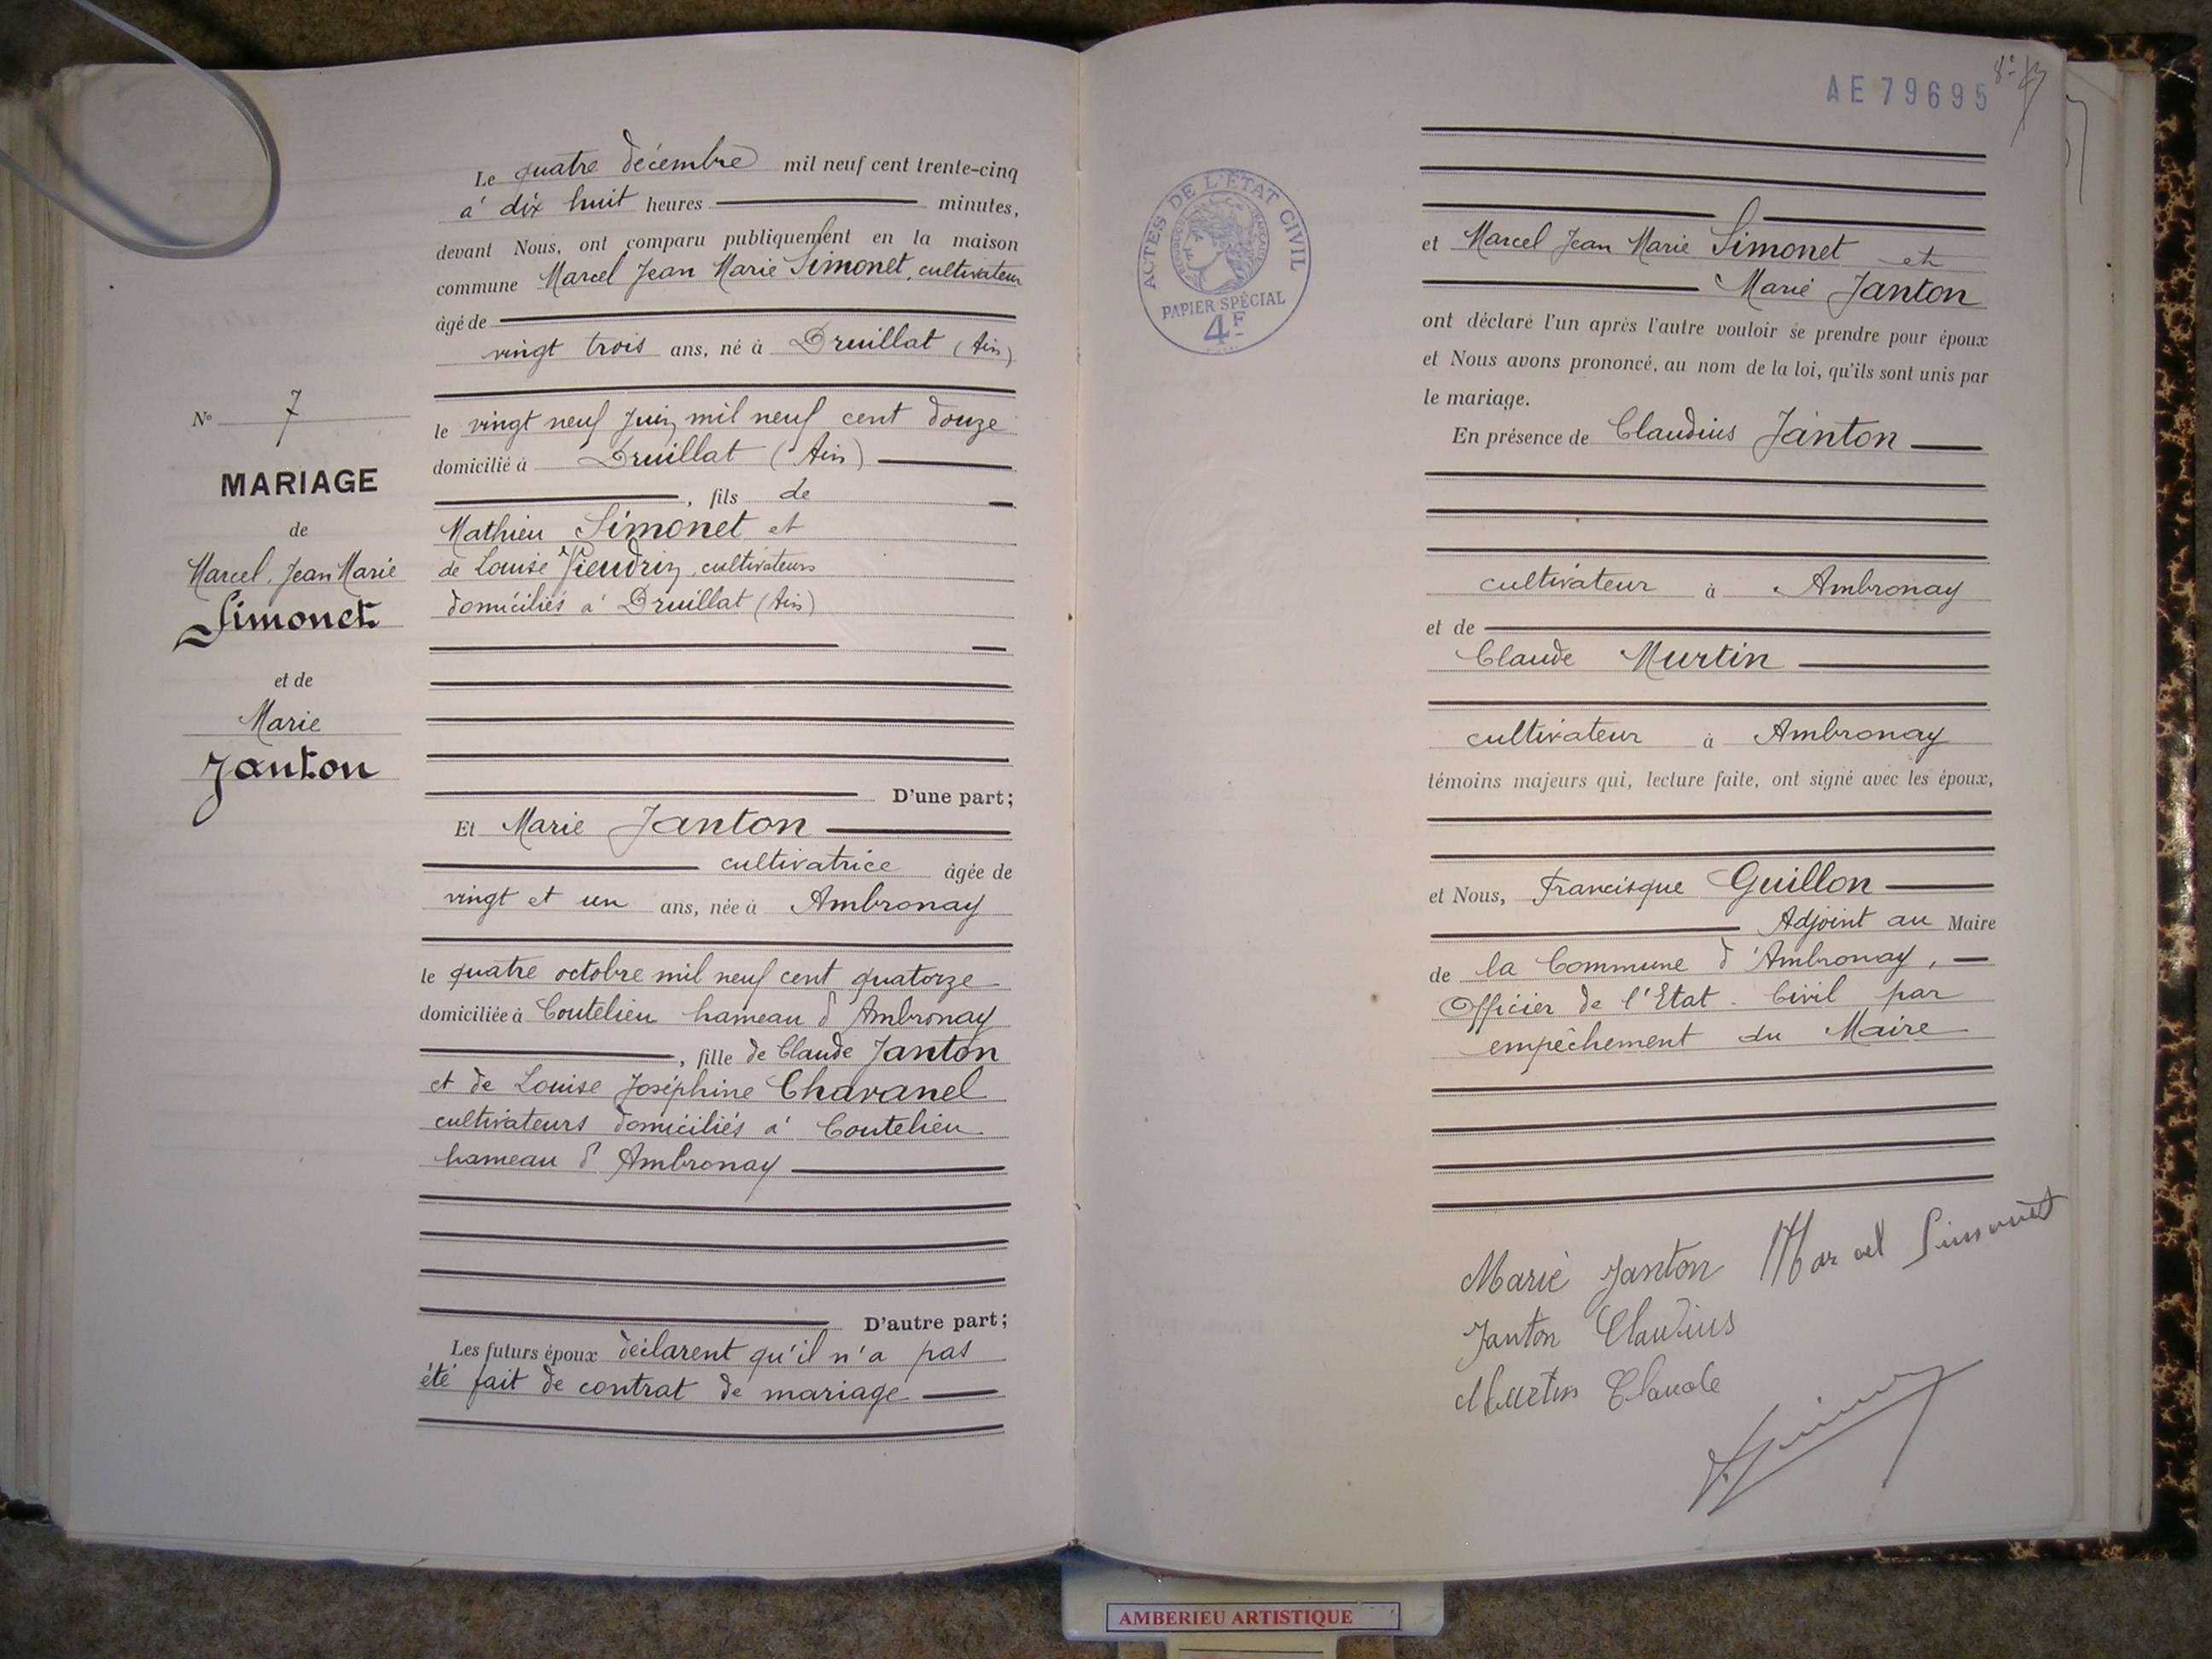 Le quatre décembre mil neuf cent trente-cinq
à dix huit heures minutes,
devant Nous, ont comparu publiquement en la maison
commune Marcel Jean Marie Simonet, cultivateur
âgé de
vingt trois ans, né à Druillat (Ain)
le vingt neuf Juin mil neuf cent douze
domicilié à Druillat (Ain)
, fils de
Mathieu Simonet et
de Louise, cultivateurs
domiciliés à Druillat (Ain)
D'une part;
Et Marie Janton
cultivatrice âgée de
vingt et un ans, née à Ambronay
le quatre octobre mil neuf cent quatorze
domiciliée à Coutelieu hameau d'Ambronay
, fille de Claude Janton
et de Louise Joséphine Chavanel
cultivateurs domiciliés à Coutelieu
hameau d'Ambronay
D'autre part;
Les futurs époux déclarent qu'il n'a pas
été fait de contrat de mariage
N° 7
MARIAGE
de
Marcel, Jean Marie
Simonet
et de
Marie
Janton
AE 79695
ACTES DE L'ÉTAT CIVIL
PAPIER SPÉCIAL
4F
et Marcel Jean Marie Simonet et
Marie Janton
ont déclaré l'un après l'autre vouloir se prendre pour époux
et Nous avons prononcé, au nom de la loi, qu'ils sont unis par
le mariage.
En présence de Claudius Janton
cultivateur à Ambronay
et de
Claude Murtin
cultivateur à Ambronay
témoins majeurs qui, lecture faite, ont signé avec les époux,
et Nous, Francisque Guillon
Adjoint au Maire
de la Commune d'Ambronay,
Officier de l'Etat-Civil par
empêchement du Maire
Marie Janton Marcel Simonet
Janton Claudius
Murtin Claude
AMBERIEU ARTISTIQUE